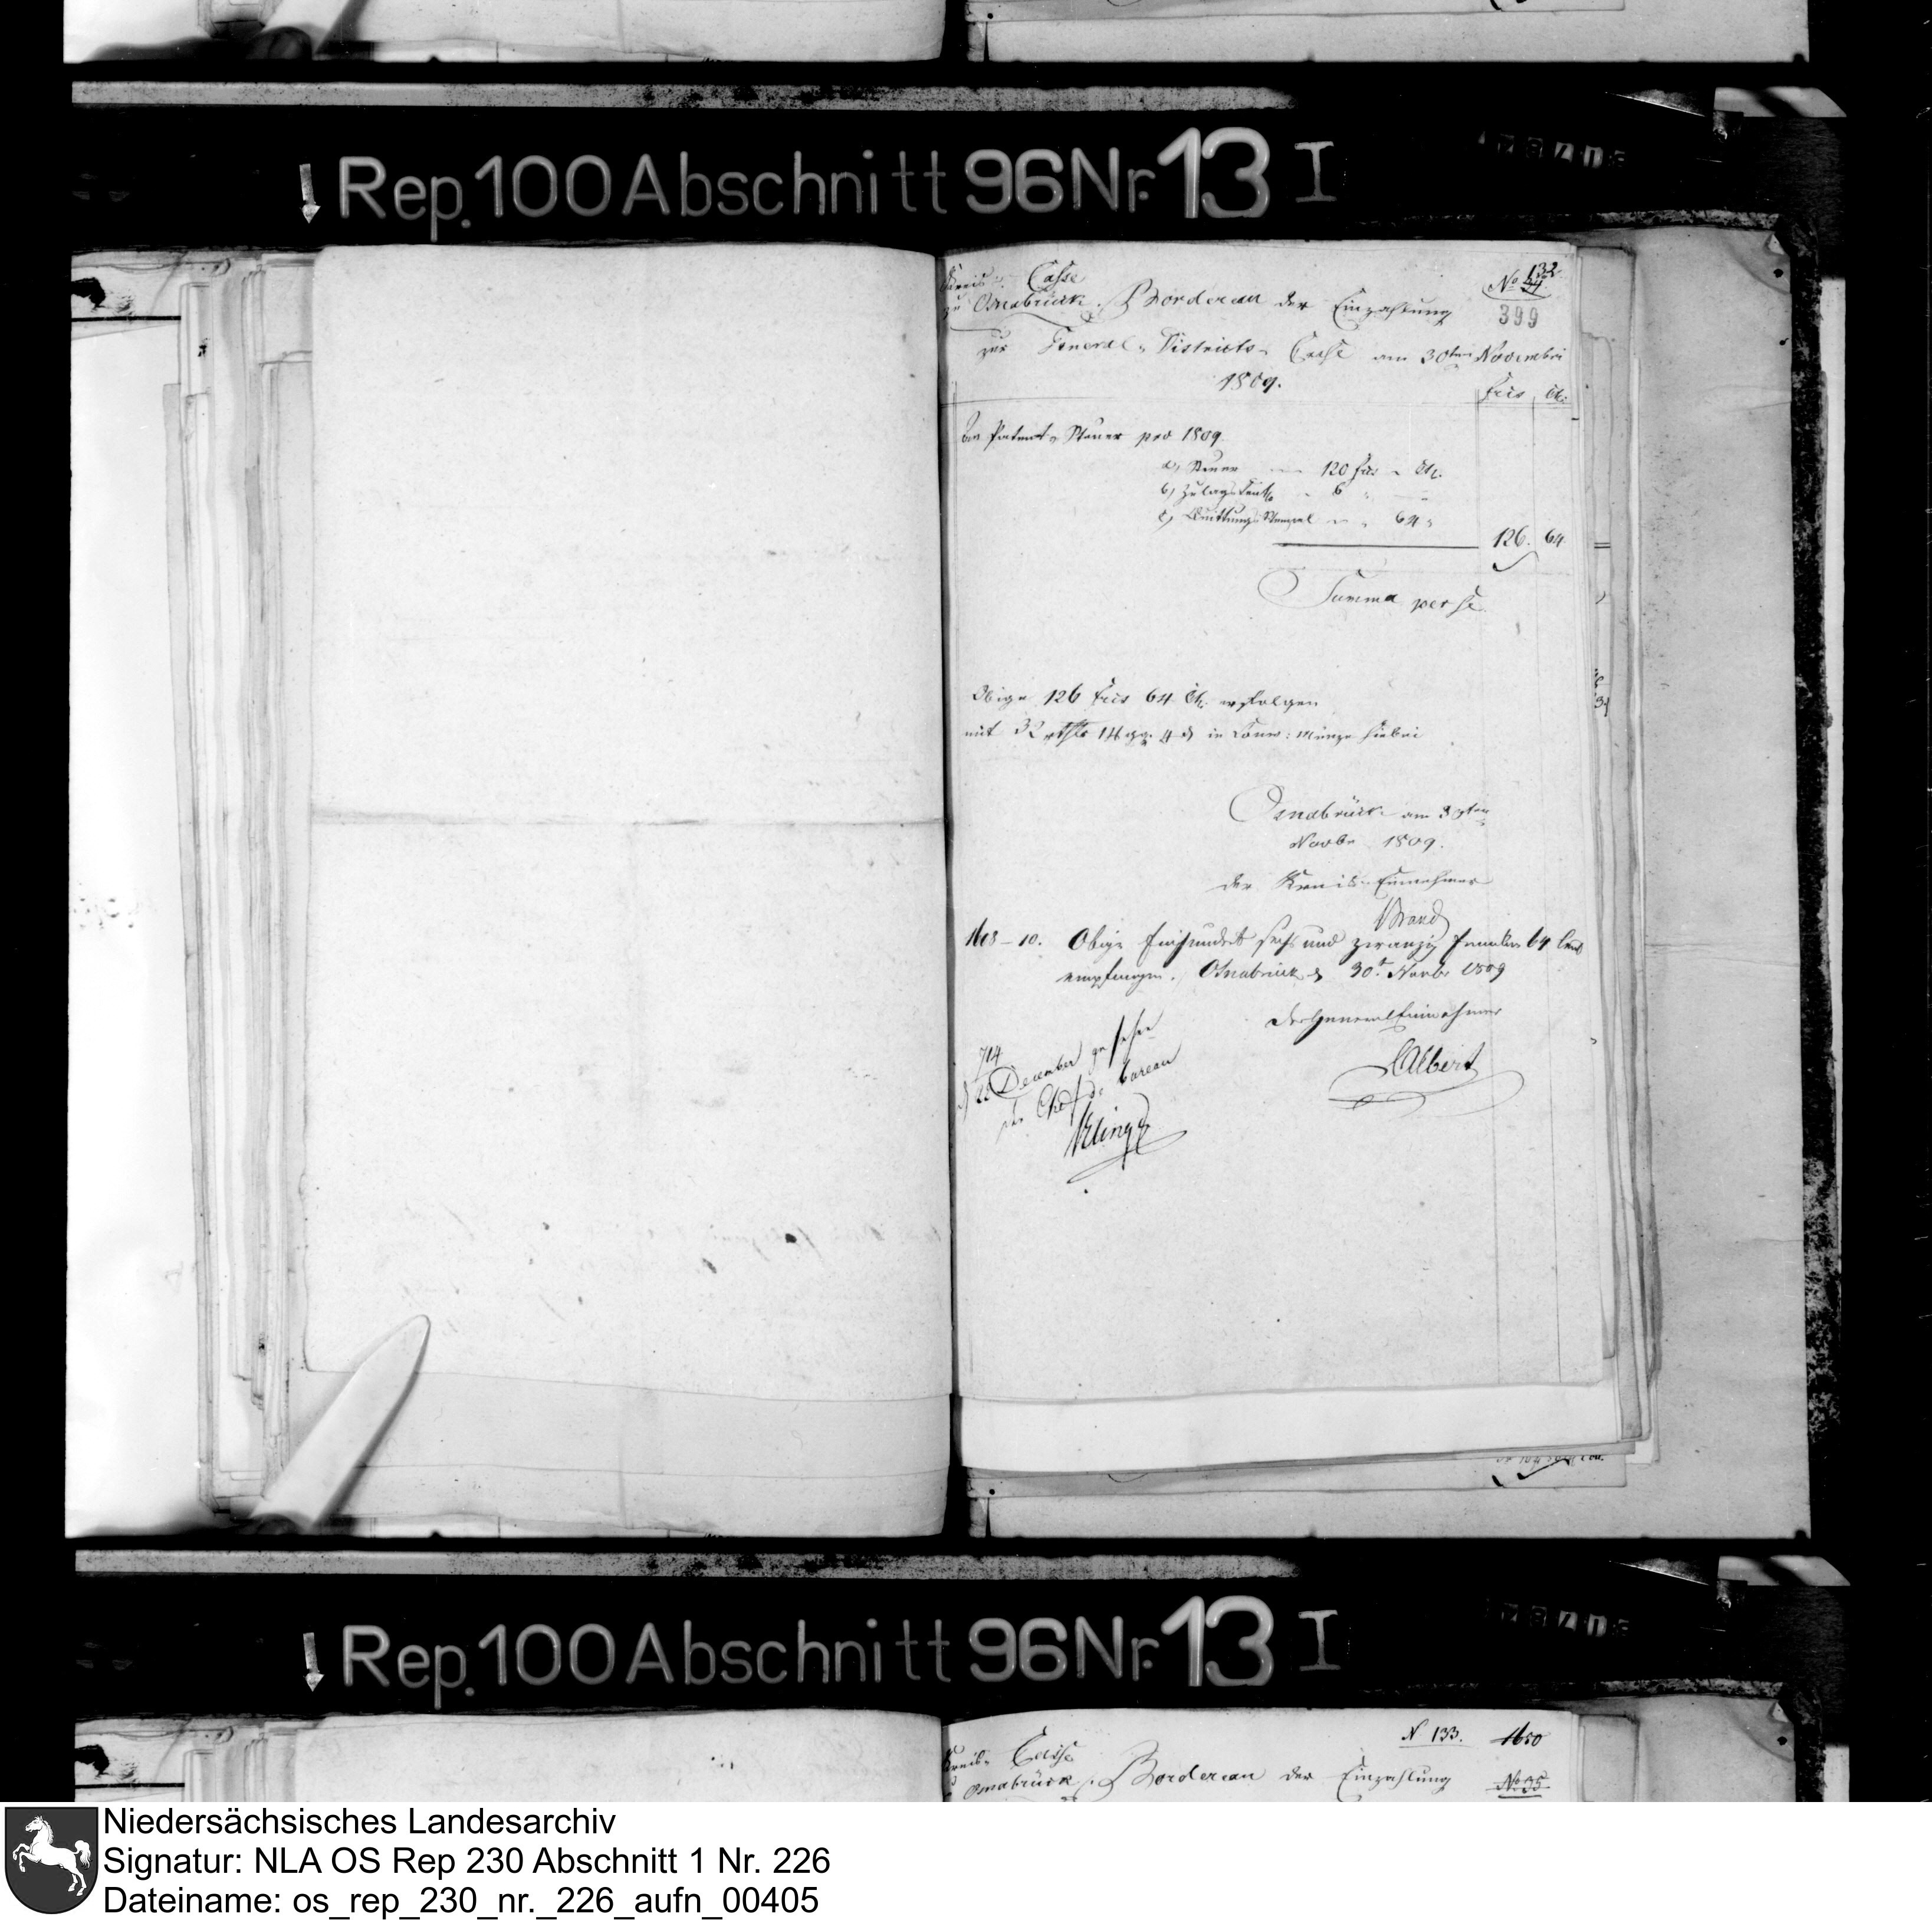 Rep. 100 Abschnitt 96 Nr. 13 I
Kreis Casse
zu Osnabrück. Bordereau der Einzahlung
No 132
399
zur General-Districts-Casse am 30ten Novembri
1809.
frcs Ct.
An Patent-Steuer pro 1809.
a, Steuer 120 frcs - Ct.
b, Zulags Cent. 6
c, Quittungs Stempel 64
126. 64
Summa per se
Obige 126 frcs 64 Ct. erfolgen
mit 32 rthlr 14 gg. 4 d in Conv: Münze hiebei
Osnabrück am 30ten
Novbr 1809.
der Kreis-Einnehmer
Brand
1608-10. Obige Einhundert sechs und zwanzig Franken 64 Cent
empfangen. Osnabrück d 30t. Novbr 1809
Der General Einnehmer
Albert
714
d 22 December gesehen
der Chef de bureau
Rep. 100 Abschnitt 96 Nr. 13 I
N 133. 1650
Kreis-Casse
Osnabrück. Bordereau der Einzahlung
No 35
Niedersächsisches Landesarchiv
Signatur: NLA OS Rep 230 Abschnitt 1 Nr. 226
Dateiname: os_rep_230_nr._226_aufn_00405